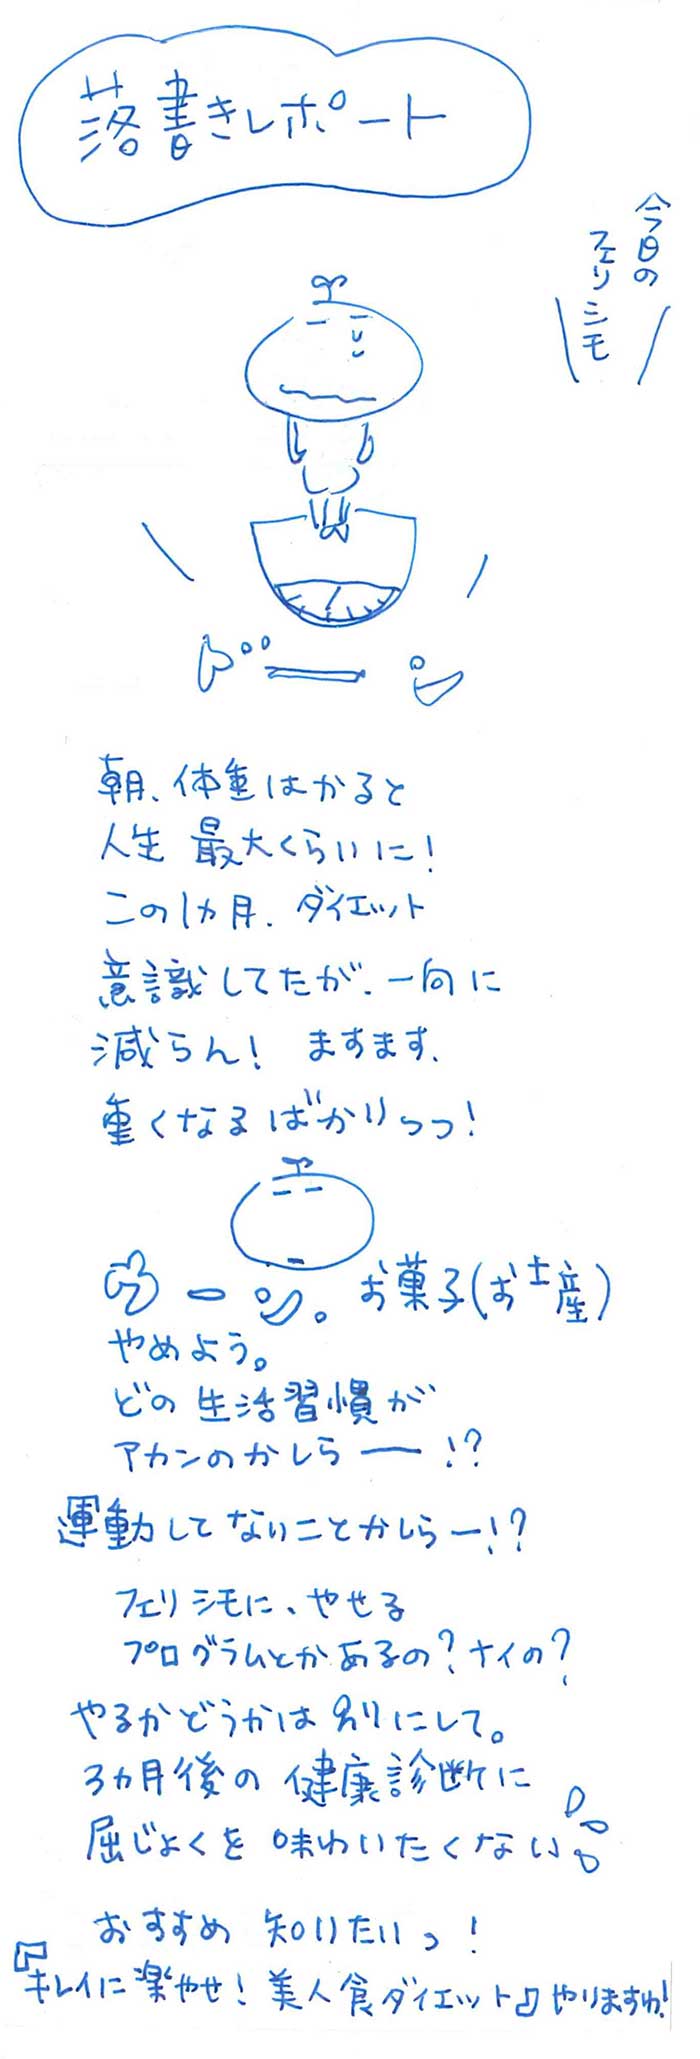 落書きレポート
今日の
フェリシモ
ガーン
朝、体重はかると
人生 最大くらいに!
この1カ月、ダイエット
意識してたが、一向に
減らん! ますます、
重くなるばかりっっ!
ウーン。お菓子(お土産)
やめよう。
どの生活習慣が
アカンのかしらー!?
運動してないことかしらー!?
フェリシモに、やせる
プログラムとかあるの?ナイの?
やるかどうかは別にして。
3カ月後の健康診断に
屈じょくを味わいたくない
おすすめ 知りたいっ!
『キレイに楽やせ!美人食ダイエット』やりますわ!